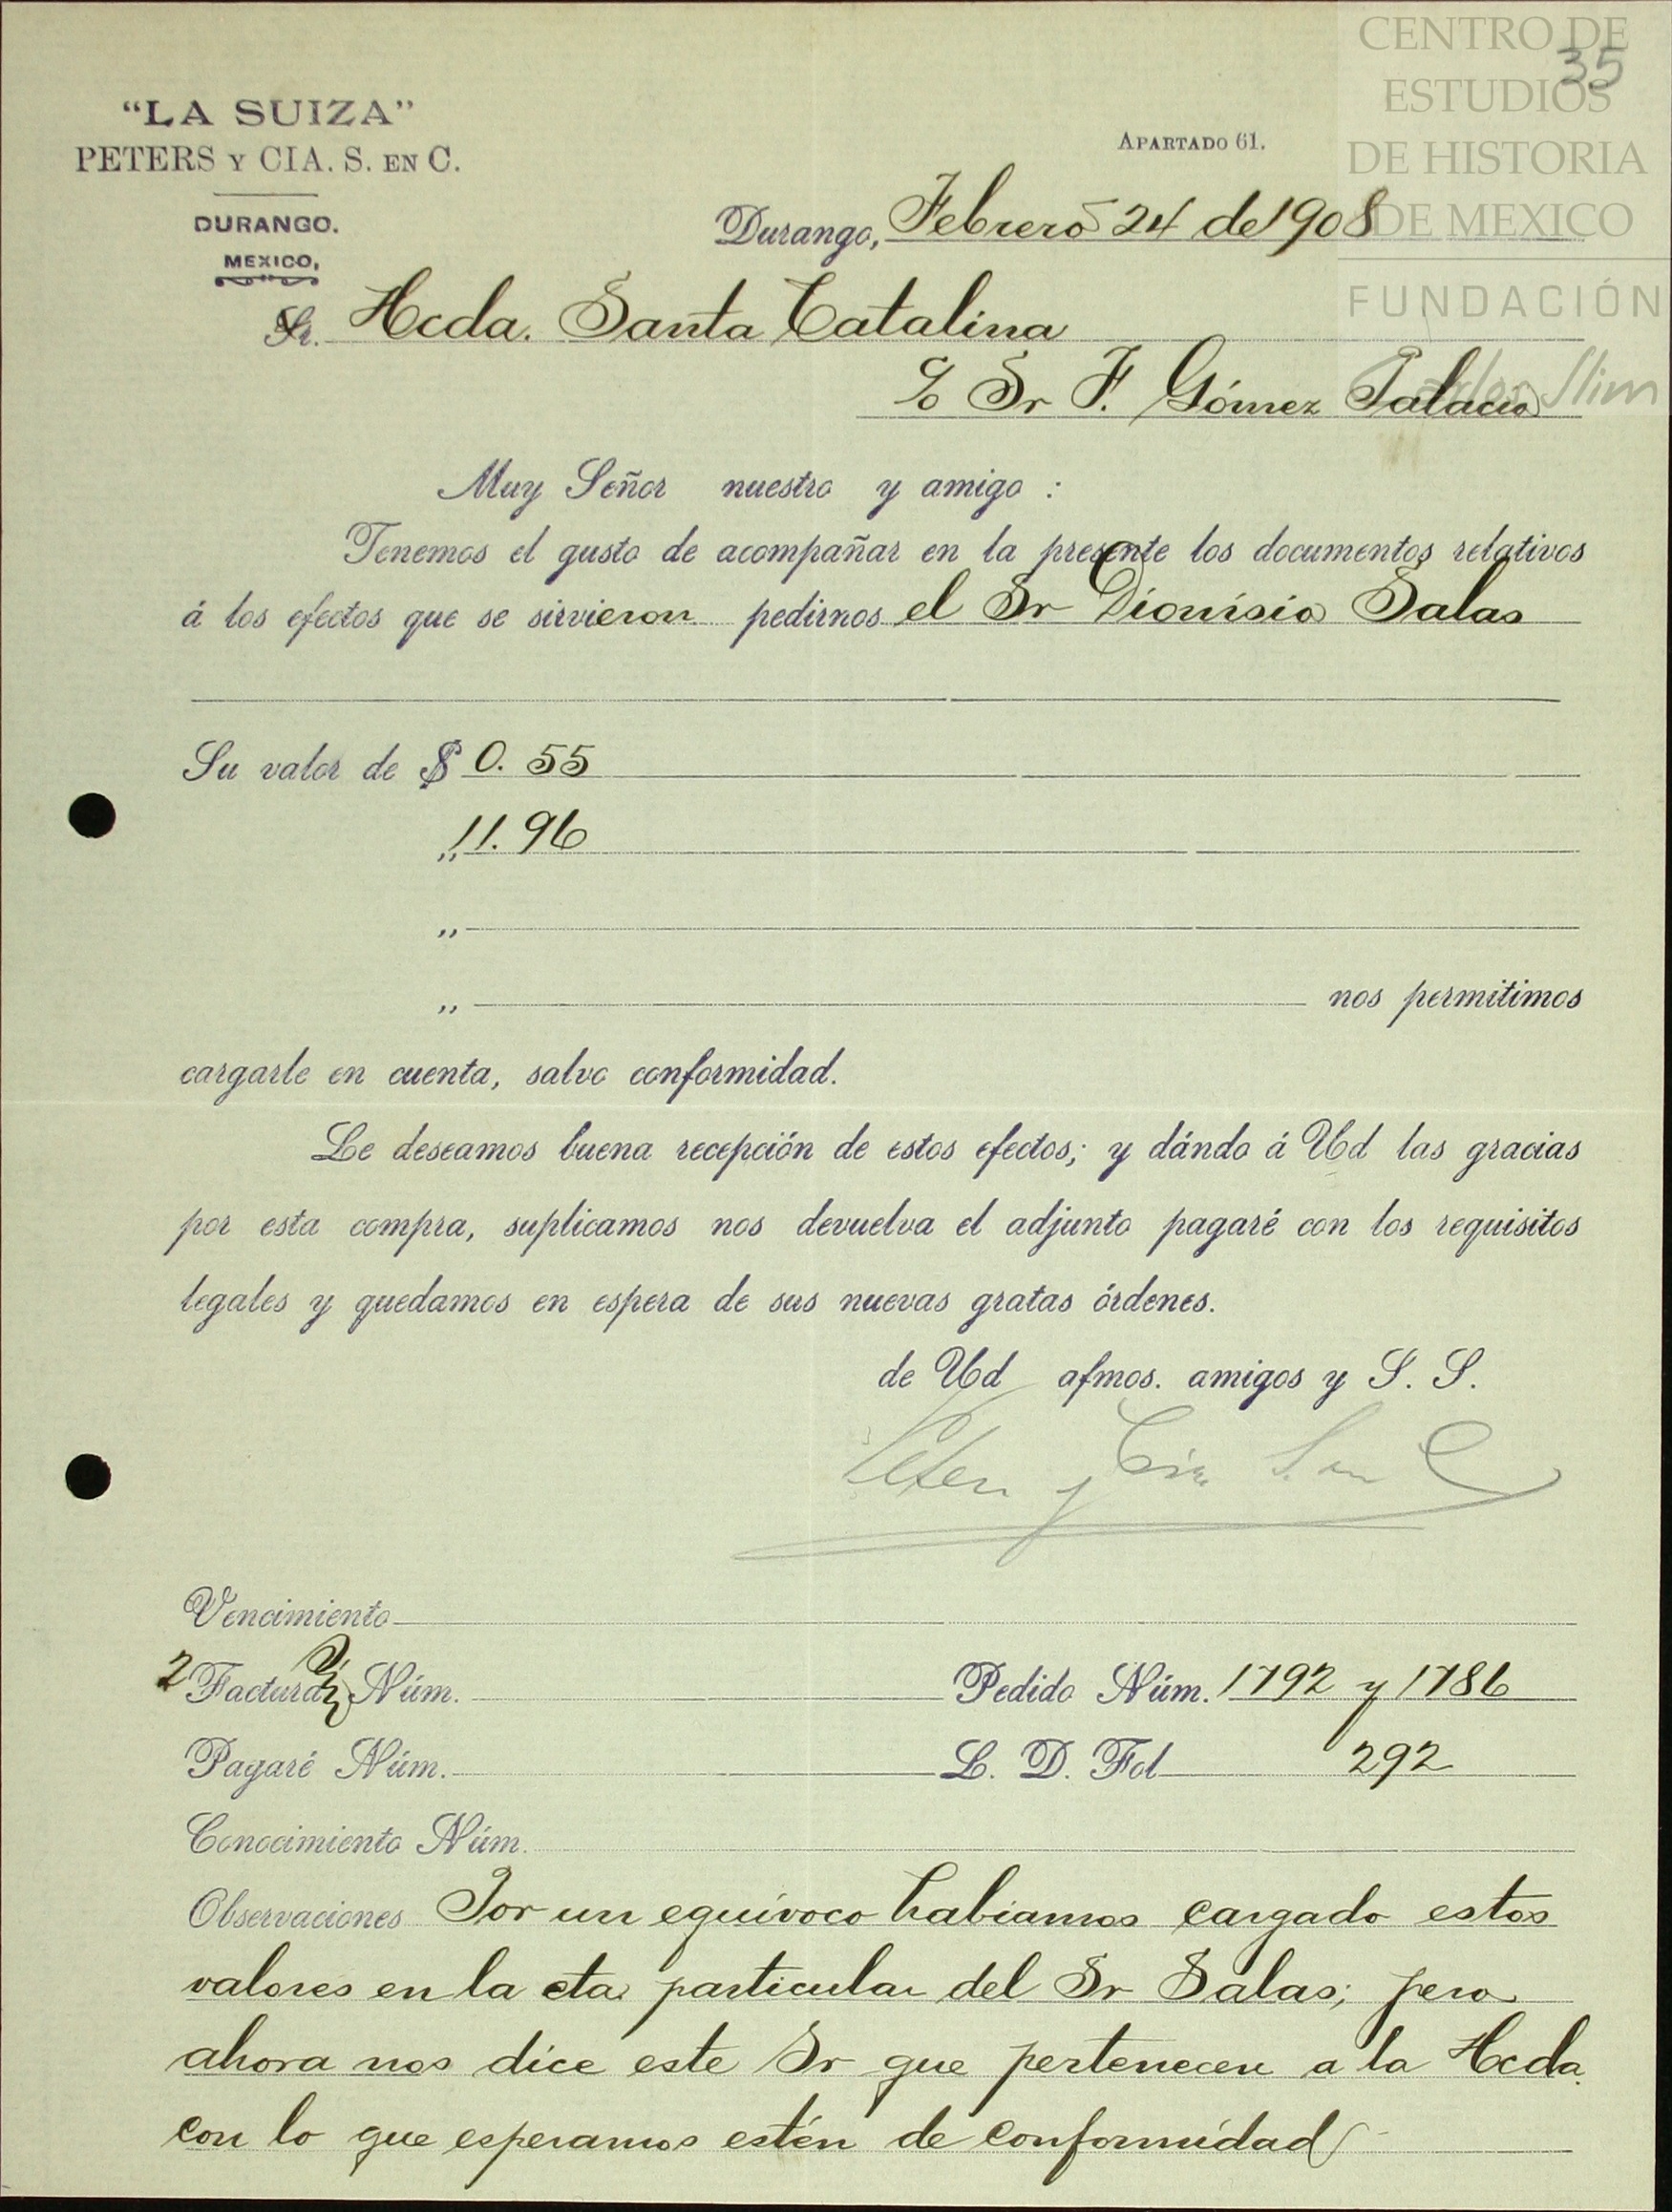 CENTRO DE
ESTUDIOS
DE HISTORIA
DE MEXICO
FUNDACIÓN
Carlos Slim
35
"LA SUIZA"
PETERS Y CIA. S. EN C.
DURANGO.
MEXICO,
APARTADO 61.
Durango, Febrero 24 de 1908
Sr. Hcda. Santa Catalina
c/o Sr F. Gómez Palacio
Muy Señor nuestro y amigo :
Tenemos el gusto de acompañar en la presente los documentos relativos
á los efectos que se sirvieron pedirnos el Sr Dionisio Salas
Su valor de $ 0.55
„ 11.96
„
„ nos permitimos
cargarle en cuenta, salvo conformidad.
Le deseamos buena recepción de estos efectos; y dándo á Ud las gracias
por esta compra, suplicamos nos devuelva el adjunto pagaré con los requisitos
legales y quedamos en espera de sus nuevas gratas órdenes.
de Ud afmos. amigos y S. S.
Peters y Cia S. en C
Vencimiento
2 Facturas Núm. Pedido Núm. 1792 y 1786
Pagaré Núm. L. D. Fol 292
Conocimiento Núm.
Observaciones Por un equívoco habiamos cargado estos
valores en la cta particular del Sr Salas; pero
ahora nos dice este Sr que pertenecen a la Hcda.
con lo que esperamos estén de conformidad